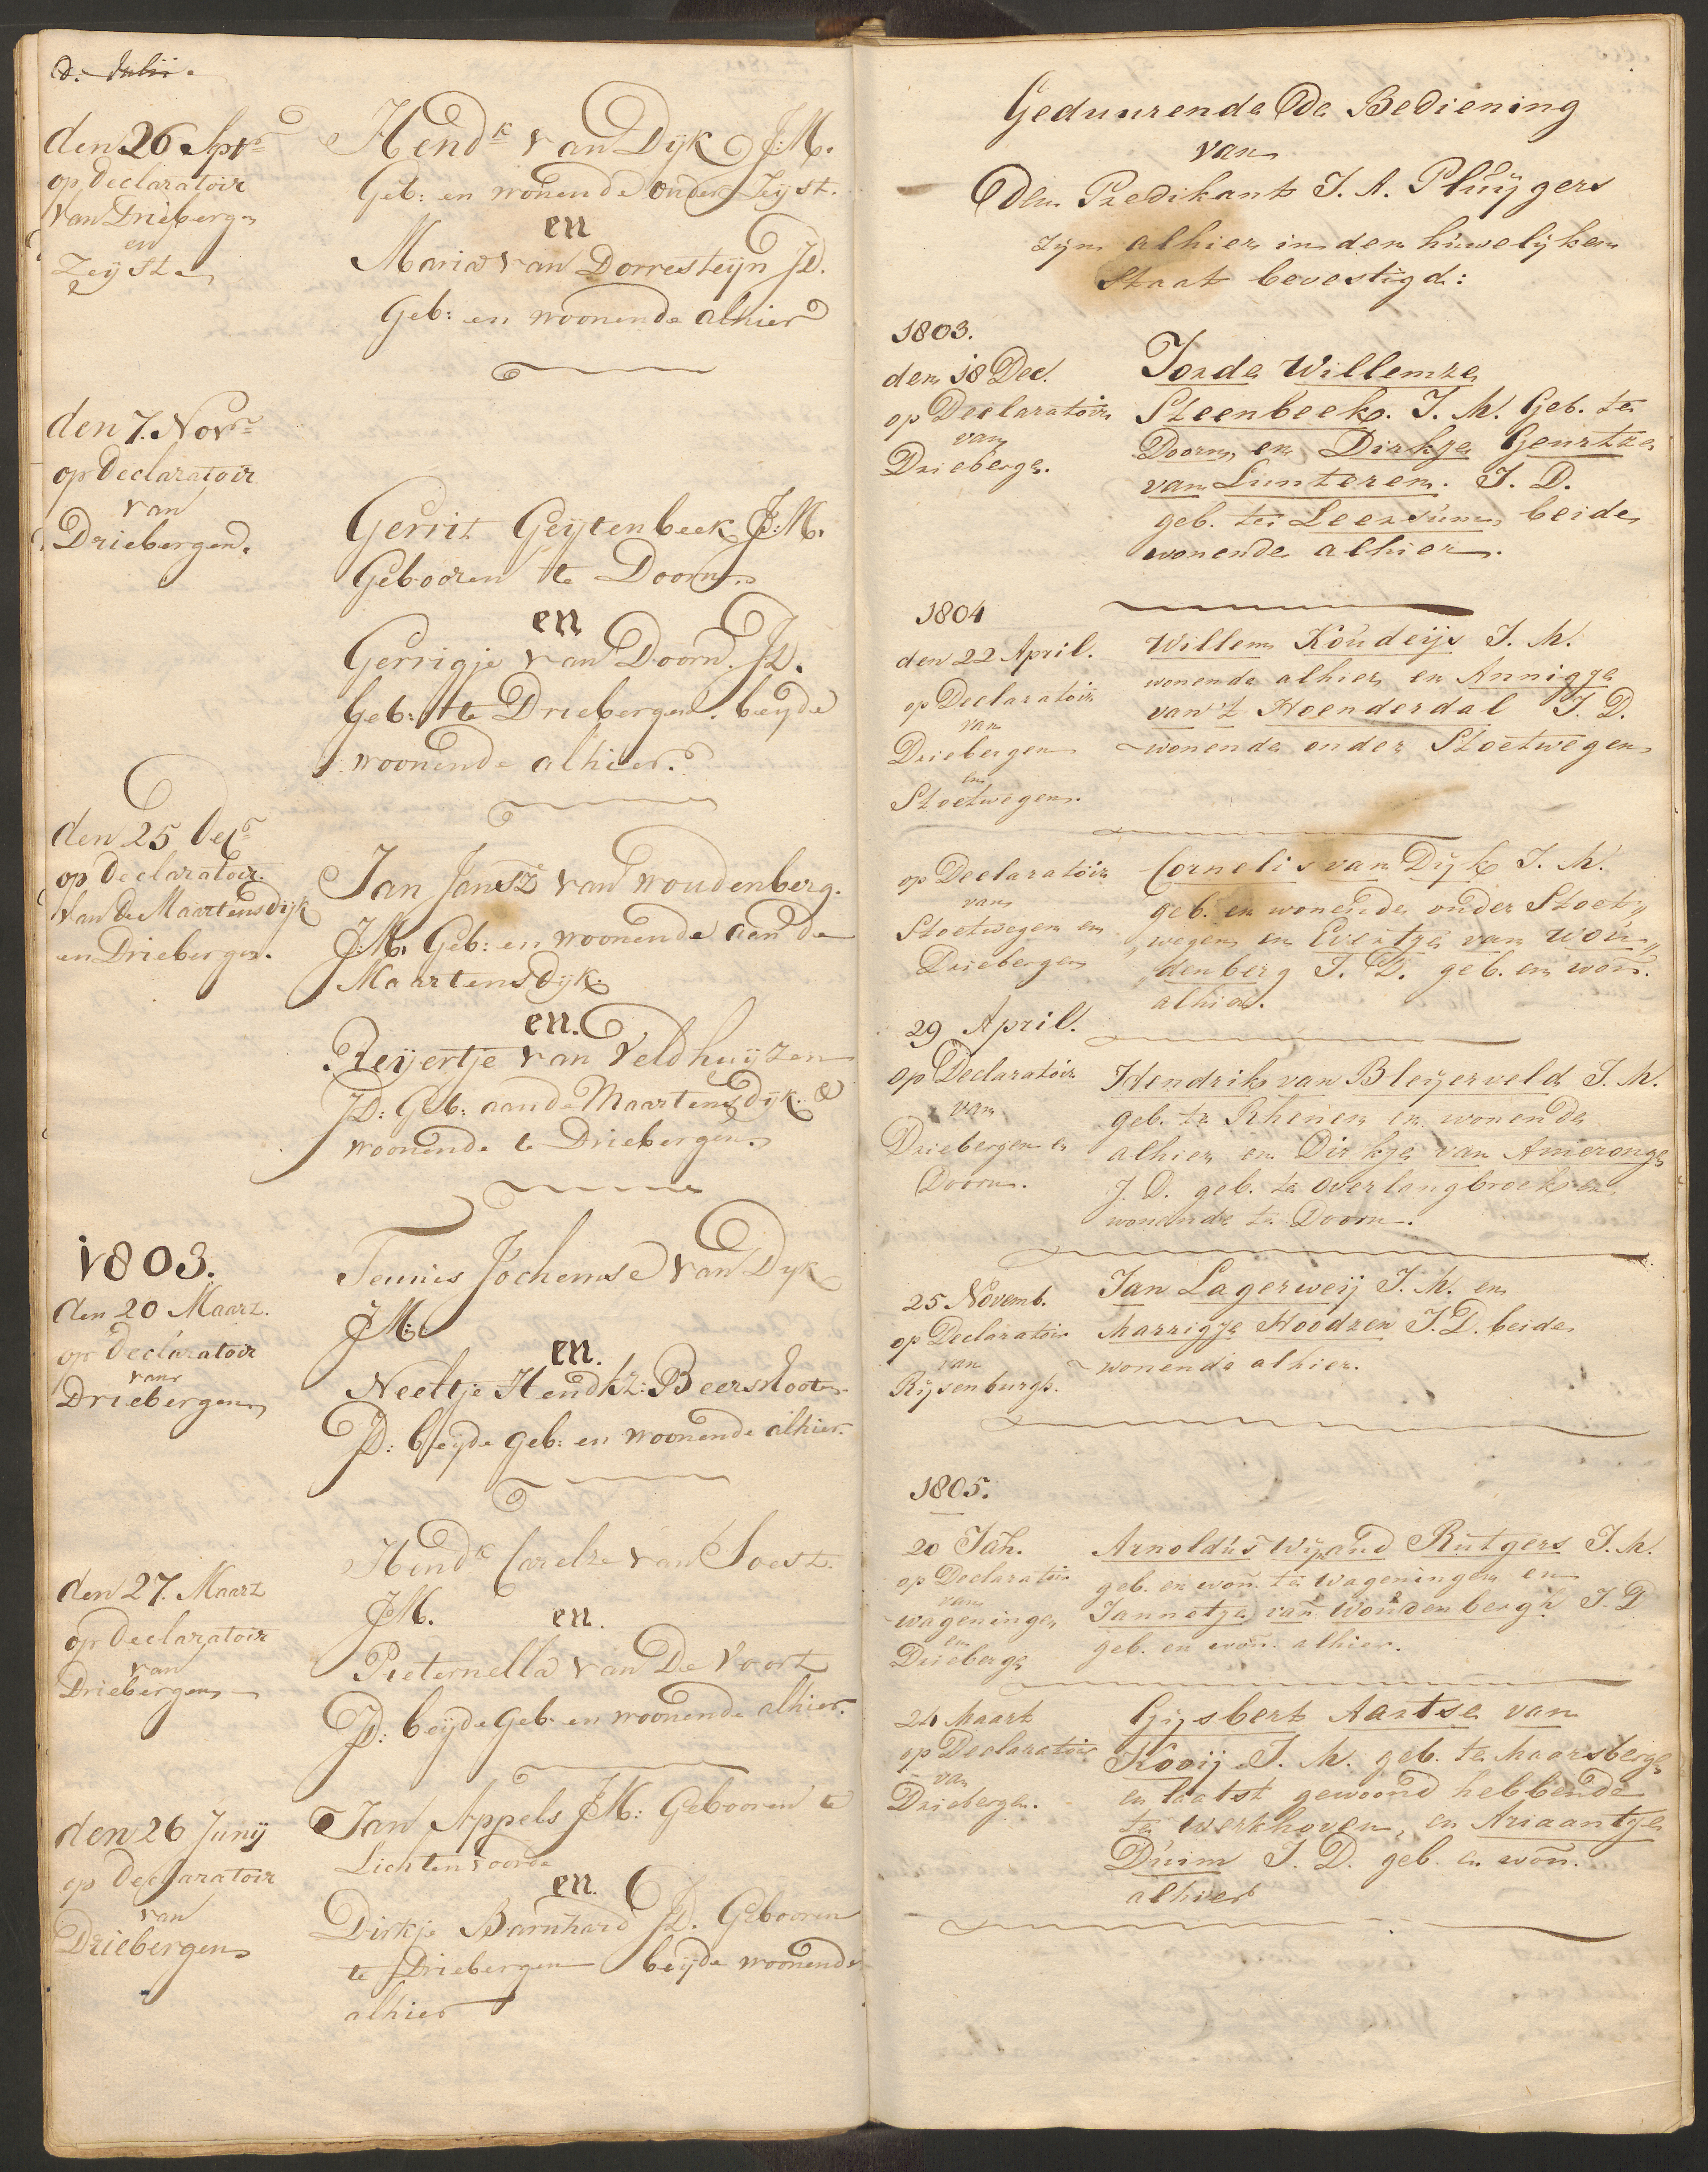 d. Julii.
den 26 Apr:
op declaratoir
van Drieberg:
en
Zeijst
Hend:k van Dijk J:M.
Geb: en wonende onder Zeyst.
en
Maria van Dorresteijn JD.
Geb: en woonende alhier
den 7. Nov:r
op declaratoir
van
Driebergen.
Gerrit Geijtenbeek J:M.
Gebooren te Doorn
en
Gerrigje van Doorn. JD.
Geb: te Driebergen. beyde
woonende alhier.
den 25 Dec:r
op declaratoir.
van De Maartensdijk
en Driebergen.
Jan Jansz van woudenberg.
J:M. Geb: en woonende aan de
Maartensdyk.
en.
Reijertje van Veldhuijzen
JD: Geb: aan de Maartensdijk. &
woonende te Driebergen.
1803.
den 20 Maart.
op declaratoir
van
Driebergen
Teunis Jochemse van Dyk
JM:
en.
Neeltje Hendkz: Beersloote
JD: beyde geb: en woonende alhier.
den 27. Maart
op declaratoir
van
Driebergen
Hend:k Carelze van Soest.
JM. en.
Pieternella van De Voort
JD: beijde Geb. en woonende alhier.
den 26 Junij
op declaratoir
van
Driebergen
Jan Appels JM: Gebooren te
Lichtenvoorde
en.
Dirkje Barnhard JD. Gebooren
te Driebergen beijde woonende
alhier
Geduurende de Bediening
van
den Predikant J. A. Pluijgers
zijn alhier in den huwelijken
Staat bevestigd:
1803.
den 18 Dec.
op Declaratoir
van
Drieberge.
Jorde Willemze
Steenbeek. J. M. Geb. te
Doorn, en Dirkje Geurtze
van Lunteren. J. D.
geb. te Leersum, beide
wonende alhier.
1804
den 22 April.
op Declaratoir
van
Driebergen
en
Stoetwegen.
Willem Koudeijs J. M.
wonende alhier en Annigje
van 't Hoenderdal J. D.
wonende onder Stoetwegen
op Declaratoir
van
Stoetwegen en
Driebergen
Cornelis van Dijk J. M.
geb. en wonende onder Stoet„
„wegen en Evertje van Wou„
„denberg J. D. geb. en won.
alhier.
29 April.
op Declaratoir
van
Driebergen en
Doorn.
Hendrik van Bleijerveld J. M.
geb. te Rhenen en wonende
alhier en Dirkje van Ameronge
J. D. geb. te overlangbroek en
wonende te Doorn.
25 Novemb.
op Declaratoir
van
Rijsenburgh.
Jan Lagerweij J. M. en
Marrigje Hoodzen J. D. beide
wonende alhier.
1805.
20 Jan.
op Declaratoir
van
wageninge,
en
Drieberge
Arnoldus Wijnand Rutgers J. M.
geb. en won. te Wageningen en
Jannetje van Woudenbergh J. D
geb. en won. alhier.
24 Maart
op Declaratoir
van
Driebergen.
Gijsbert Aartse van
Kooij J. M. geb. te Maarsberge
en laatst gewoond hebbende
te Werkhoven, en Ariaantje
Duim J. D. geb. en won.
alhier